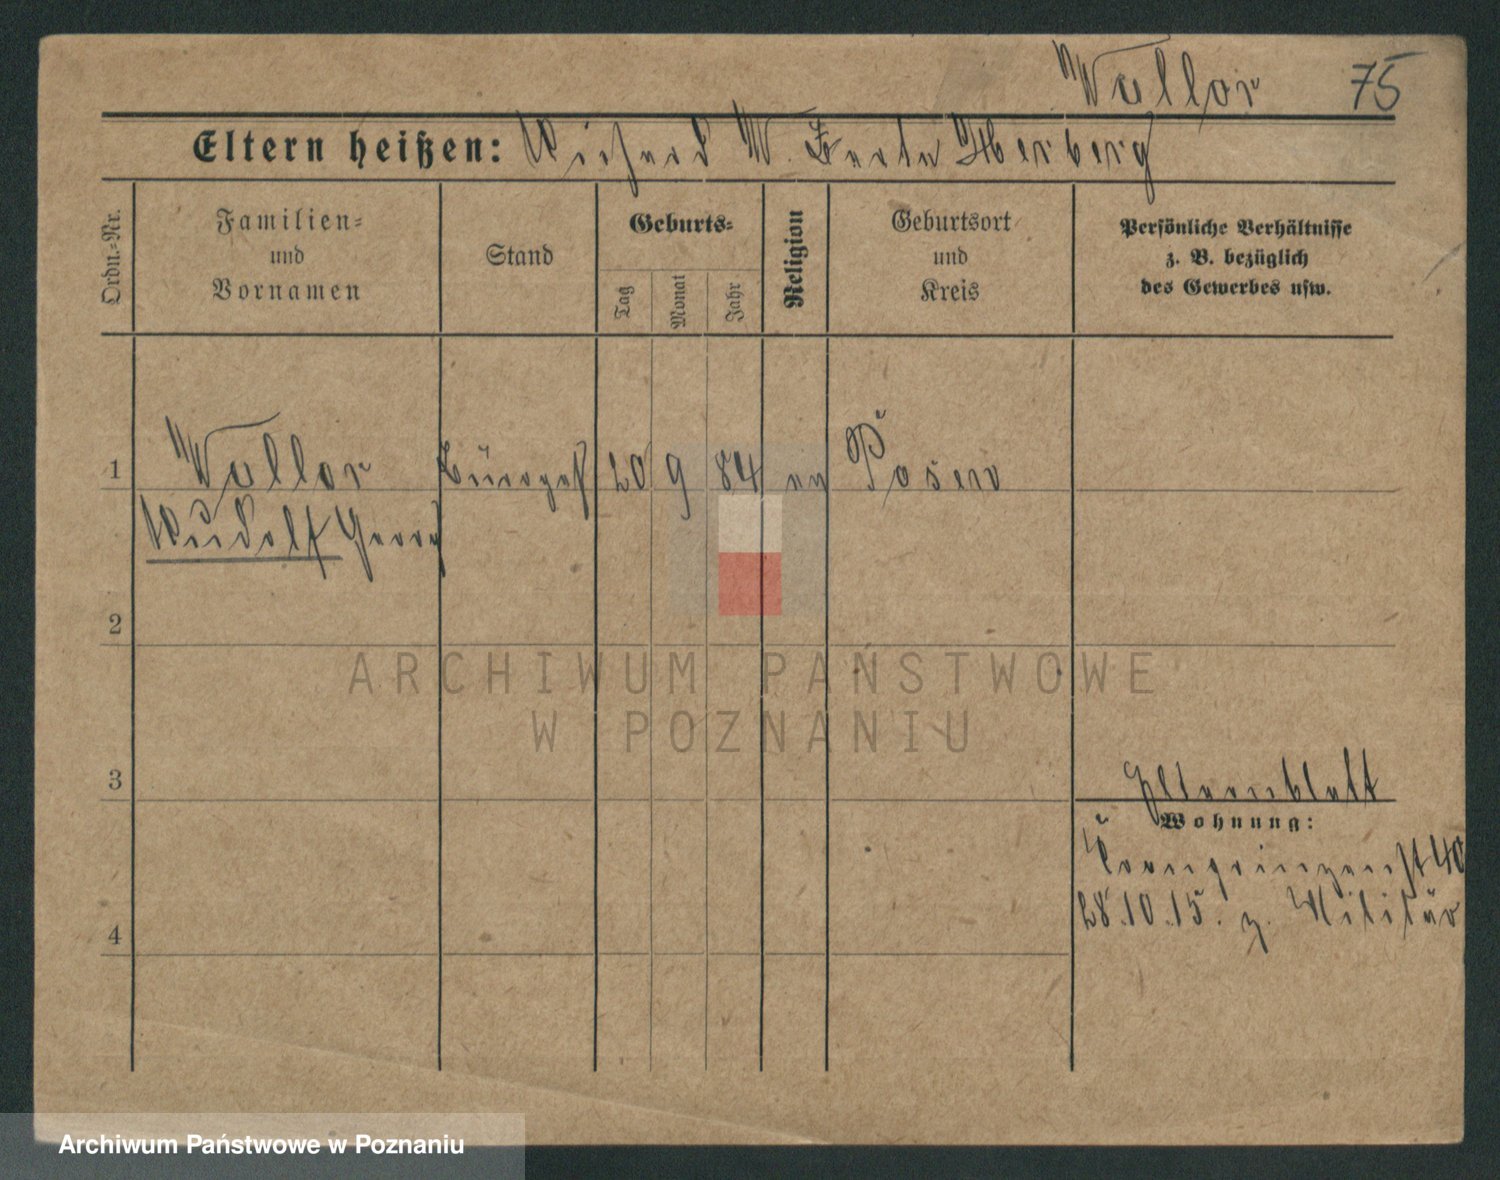 Wallor 75
Eltern heißen: Richard W. Berta Herberg
Ordn.-Nr.
Familien-
und
Vornamen
Stand
Geburts-
Tag
Monat
Jahr
Religion
Geburtsort
und
Kreis
Persönliche Verhältnisse
z. B. bezüglich
des Gewerbes usw.
1 Wallor 20 9 84 ev Posen
Rudolf Georg
2
ARCHIWUM PAŃSTWOWE
W POZNANIU
3
Elternblatt
Wohnung:
Kronprinzenst 40
28.10.15. z. Militär
4
Archiwum Państwowe w Poznaniu